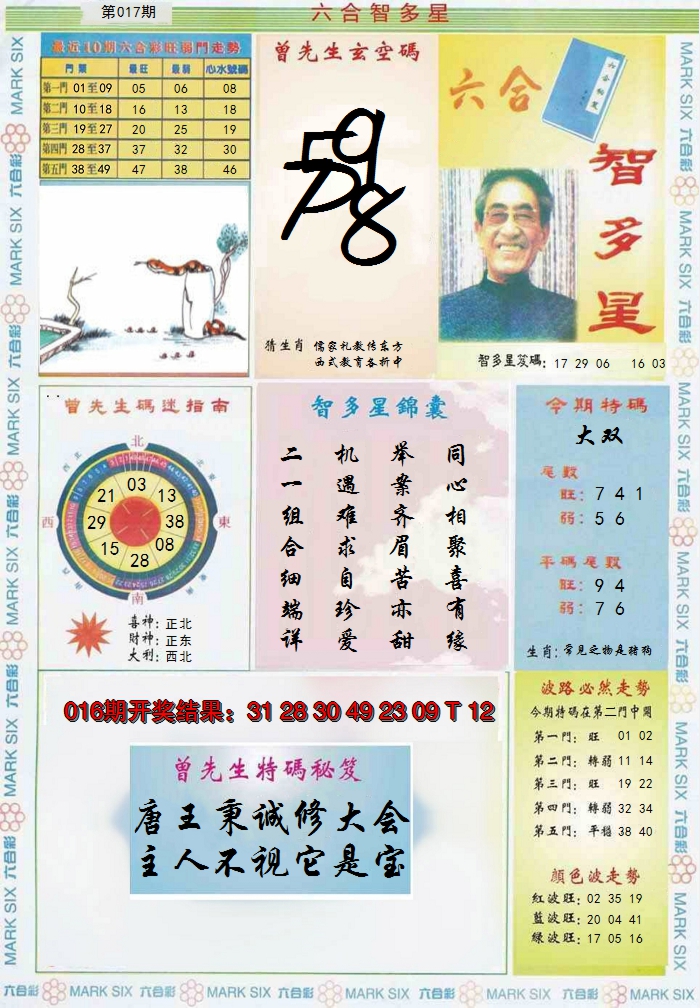 第017期
六合智多星
最近10期六合彩旺弱門走勢
門類 最旺 最弱 心水號碼
第一門 01至09 05 06 08
第二門 10至18 16 13 18
第三門 19至27 20 25 19
第四門 28至37 37 32 30
第五門 38至49 47 38 46
曾先生玄空碼
猜生肖 儒家礼教传东方
西式教育各折中
六合
智多星
智多星笈碼: 17 29 06 16 03
曾先生碼迷指南
北
西
東
南
03
21
13
29
38
15
08
28
喜神: 正北
財神: 正东
大利: 西北
智多星錦囊
同心相聚喜有缘
举案齐眉苦亦甜
机遇难求自珍爱
二一组合细端详
今期特碼
大双
尾数
旺: 7 4 1
弱: 5 6
平碼尾数
旺: 9 4
弱: 7 6
生肖: 常见之物是猪狗
016期开奖结果: 31 28 30 49 23 09 T 12
曾先生特碼秘笈
唐王秉诚修大会
主人不视它是宝
波路必然走勢
今期特碼在第二門中開
第一門: 旺 01 02
第二門: 轉弱 11 14
第三門: 旺 19 22
第四門: 轉弱 32 34
第五門: 平穩 38 40
顏色波走勢
紅波旺: 02 35 19
藍波旺: 20 04 41
綠波旺: 17 05 16
六合彩 MARK SIX 六合彩 MARK SIX 六合彩 MARK SIX 六合彩 MARK SIX 六合彩 MARK SIX